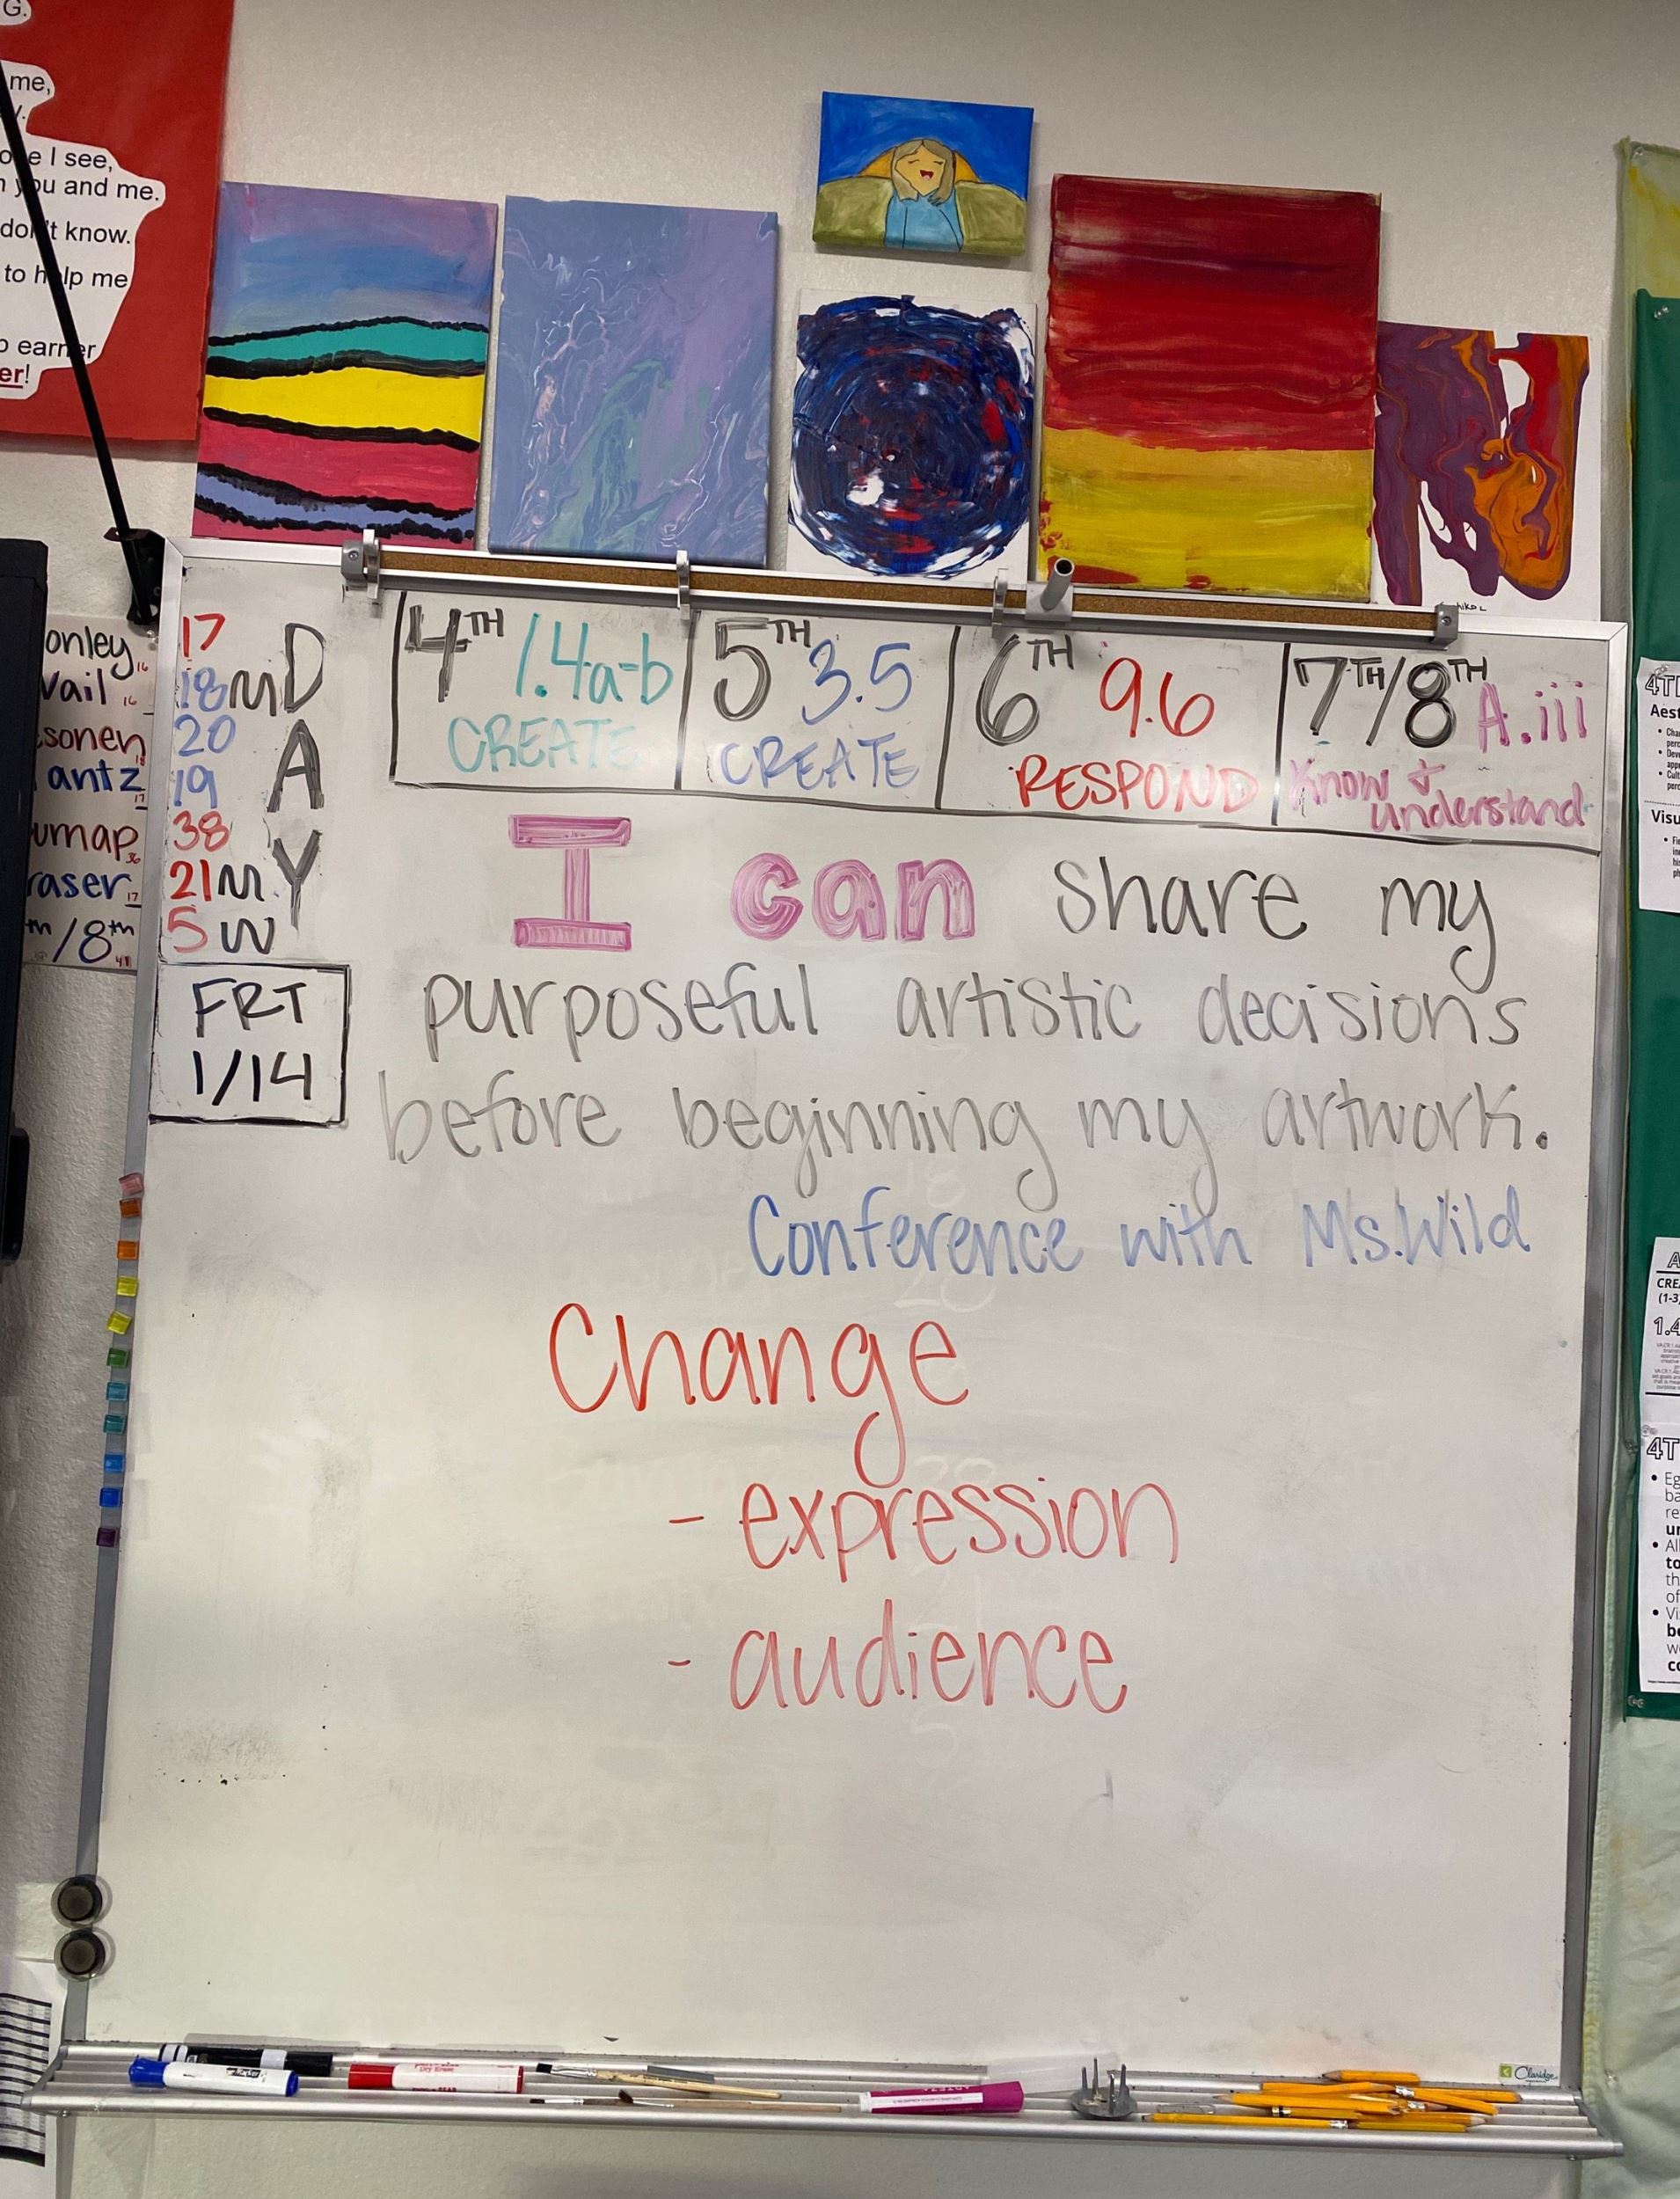 G.
me,
e I see,
you and me.
know.
to help me
earner
er!
onley 16
vail 16
sonen 18
antz 17
umap 36
raser 17
/8th
17
18 M
20
19
38
21 M
5 W
D
A
Y
FRI
1/14
4TH 1.4a-b
CREATE
5TH 3.5
CREATE
6TH 9.6
RESPOND
7TH/8TH A.iii
Know +
understand
I can share my
purposeful artistic decisions
before beginning my artwork.
Conference with Ms. Wild
Change
- expression
- audience
Claridge
4T
Aest
Visu
CRE
(1-3
1.4
4T